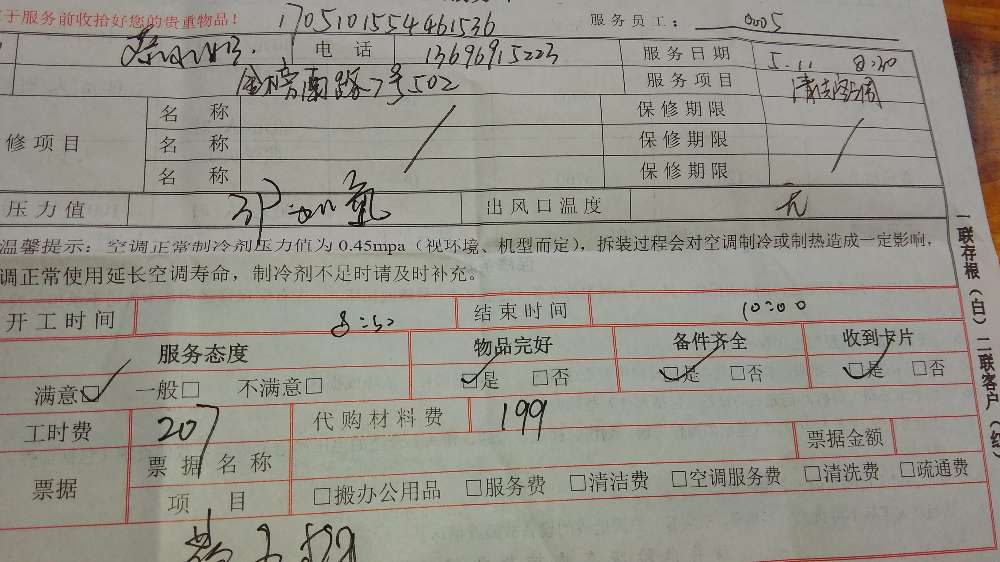 于服务前收拾好您的贵重物品! 1705101554461536 服务员工: 0005
电 话 13696915223 服务日期 5.11 8:30
金榜南路7号502 服务项目 清洗空调
修项目 名 称 保修期限
名 称 保修期限
名 称 保修期限
压力值 出风口温度 无
温馨提示: 空调正常制冷剂压力值为 0.45mpa (视环境、机型而定), 拆装过程会对空调制冷或制热造成一定影响,
调正常使用延长空调寿命, 制冷剂不足时请及时补充。
开工时间 8:50 结束时间 10:00
服务态度 物品完好 备件齐全 收到卡片
满意□ 一般□ 不满意□ □是 □否 □是 □否 □是 □否
工时费 207 代购材料费 199
票据 票据名称 票据金额
项 目 □搬办公用品 □服务费 □清洁费 □空调服务费 □清洗费 □疏通费
一联存根(白) 二联客户(红)